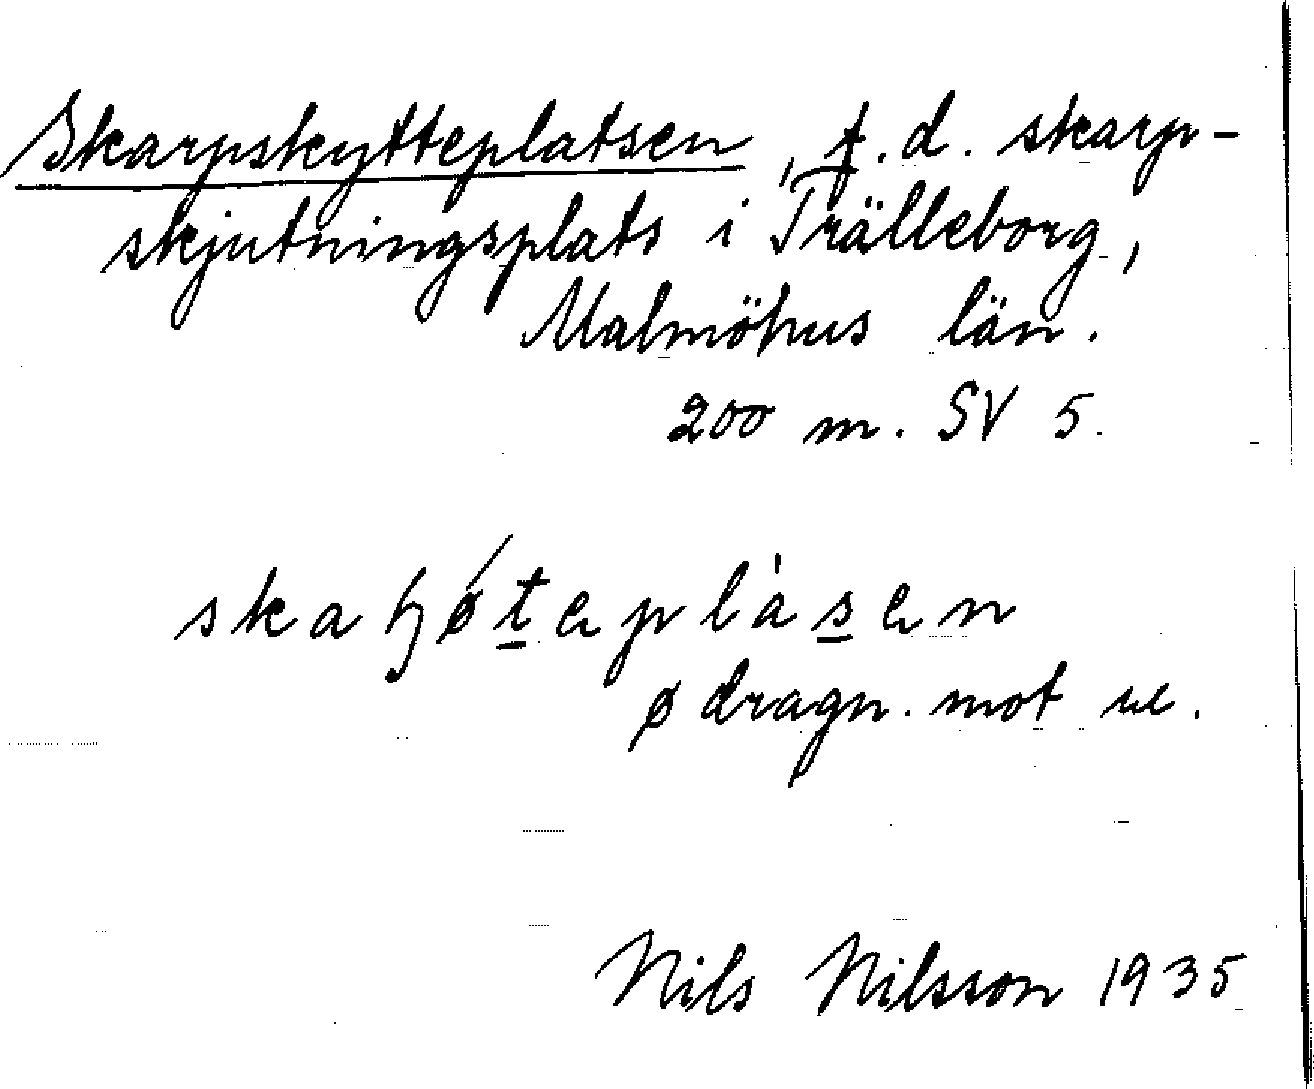 Skarpskytteplatsen, f.d. skarp-
skjutningsplats i Trälleborg,
Malmöhus län.
200 m. SV 5.
skaɧǿtepla̍sen
ø dragn. mot
Nils Nilsson 1935